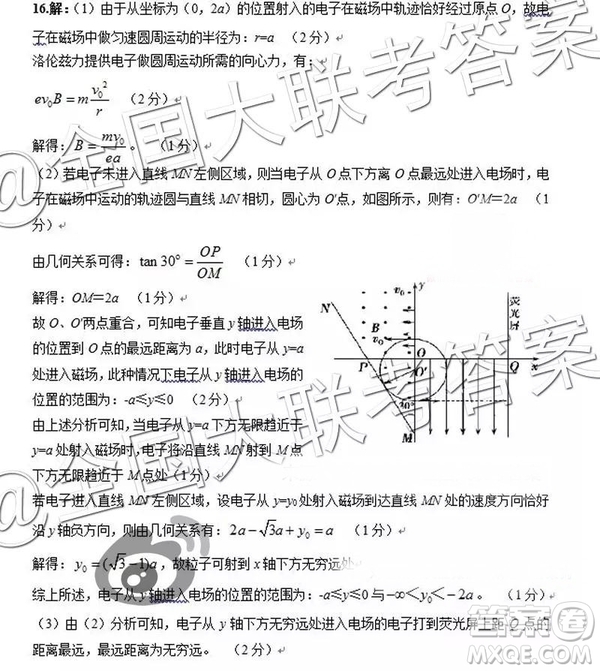 16.解：（1）由于从坐标为（0，2a）的位置射入的电子在磁场中轨迹恰好经过原点 O，故电
子在磁场中做匀速圆周运动的半径为：r=a （2分）
洛伦兹力提供电子做圆周运动所需的向心力，有：
ev₀B = m v₀²/r （2分）
解得：B = mv₀/ea。 （1分）
（2）若电子未进入直线 MN 左侧区域，则当电子从 O 点下方离 O 点最远处进入电场时，电
子在磁场中运动的轨迹圆与直线 MN 相切，圆心为 O'点，如图所示，则有：O'M=2a （1
分）
由几何关系可得：tan 30° = OP/OM （1分）
解得：OM=2a （1分）
故 O、O'两点重合，可知电子垂直 y 轴进入电场
的位置到 O 点的最远距离为 a，此时电子从 y=a
处进入磁场，此种情况下电子从 y 轴进入电场的
位置的范围为：-a≤y≤0 （2分）
由上述分析可知，当电子从 y=a 下方无限趋近于
y=a 处射入磁场时，电子将沿直线 MN 射到 M 点
下方无限趋近于 M 点处（1分）
N
v₀
y
荧光屏
B
v₀
O
P
O'
Q
x
30°
M
若电子进入直线 MN 左侧区域，设电子从 y=y₀ 处射入磁场到达直线 MN 处的速度方向恰好
沿 y 轴负方向，则由几何关系有：2a − √3a + y₀ = a （1分）
解得：y₀ = (√3−1)a，故粒子可射到 x 轴下方无穷远处
综上所述，电子从 y 轴进入电场的位置的范围为：-a≤y≤0 与 −∞＜y₀＜−2a。 （1分）
（3）由（2）分析可知，电子从 y 轴下方无穷远处进入电场的电子打到荧光屏上距 Q 点的
距离最远，最远距离为无穷远。 （2分）
@全国大联考答案
@全国大联考答案
答案圈
MXQE.COM